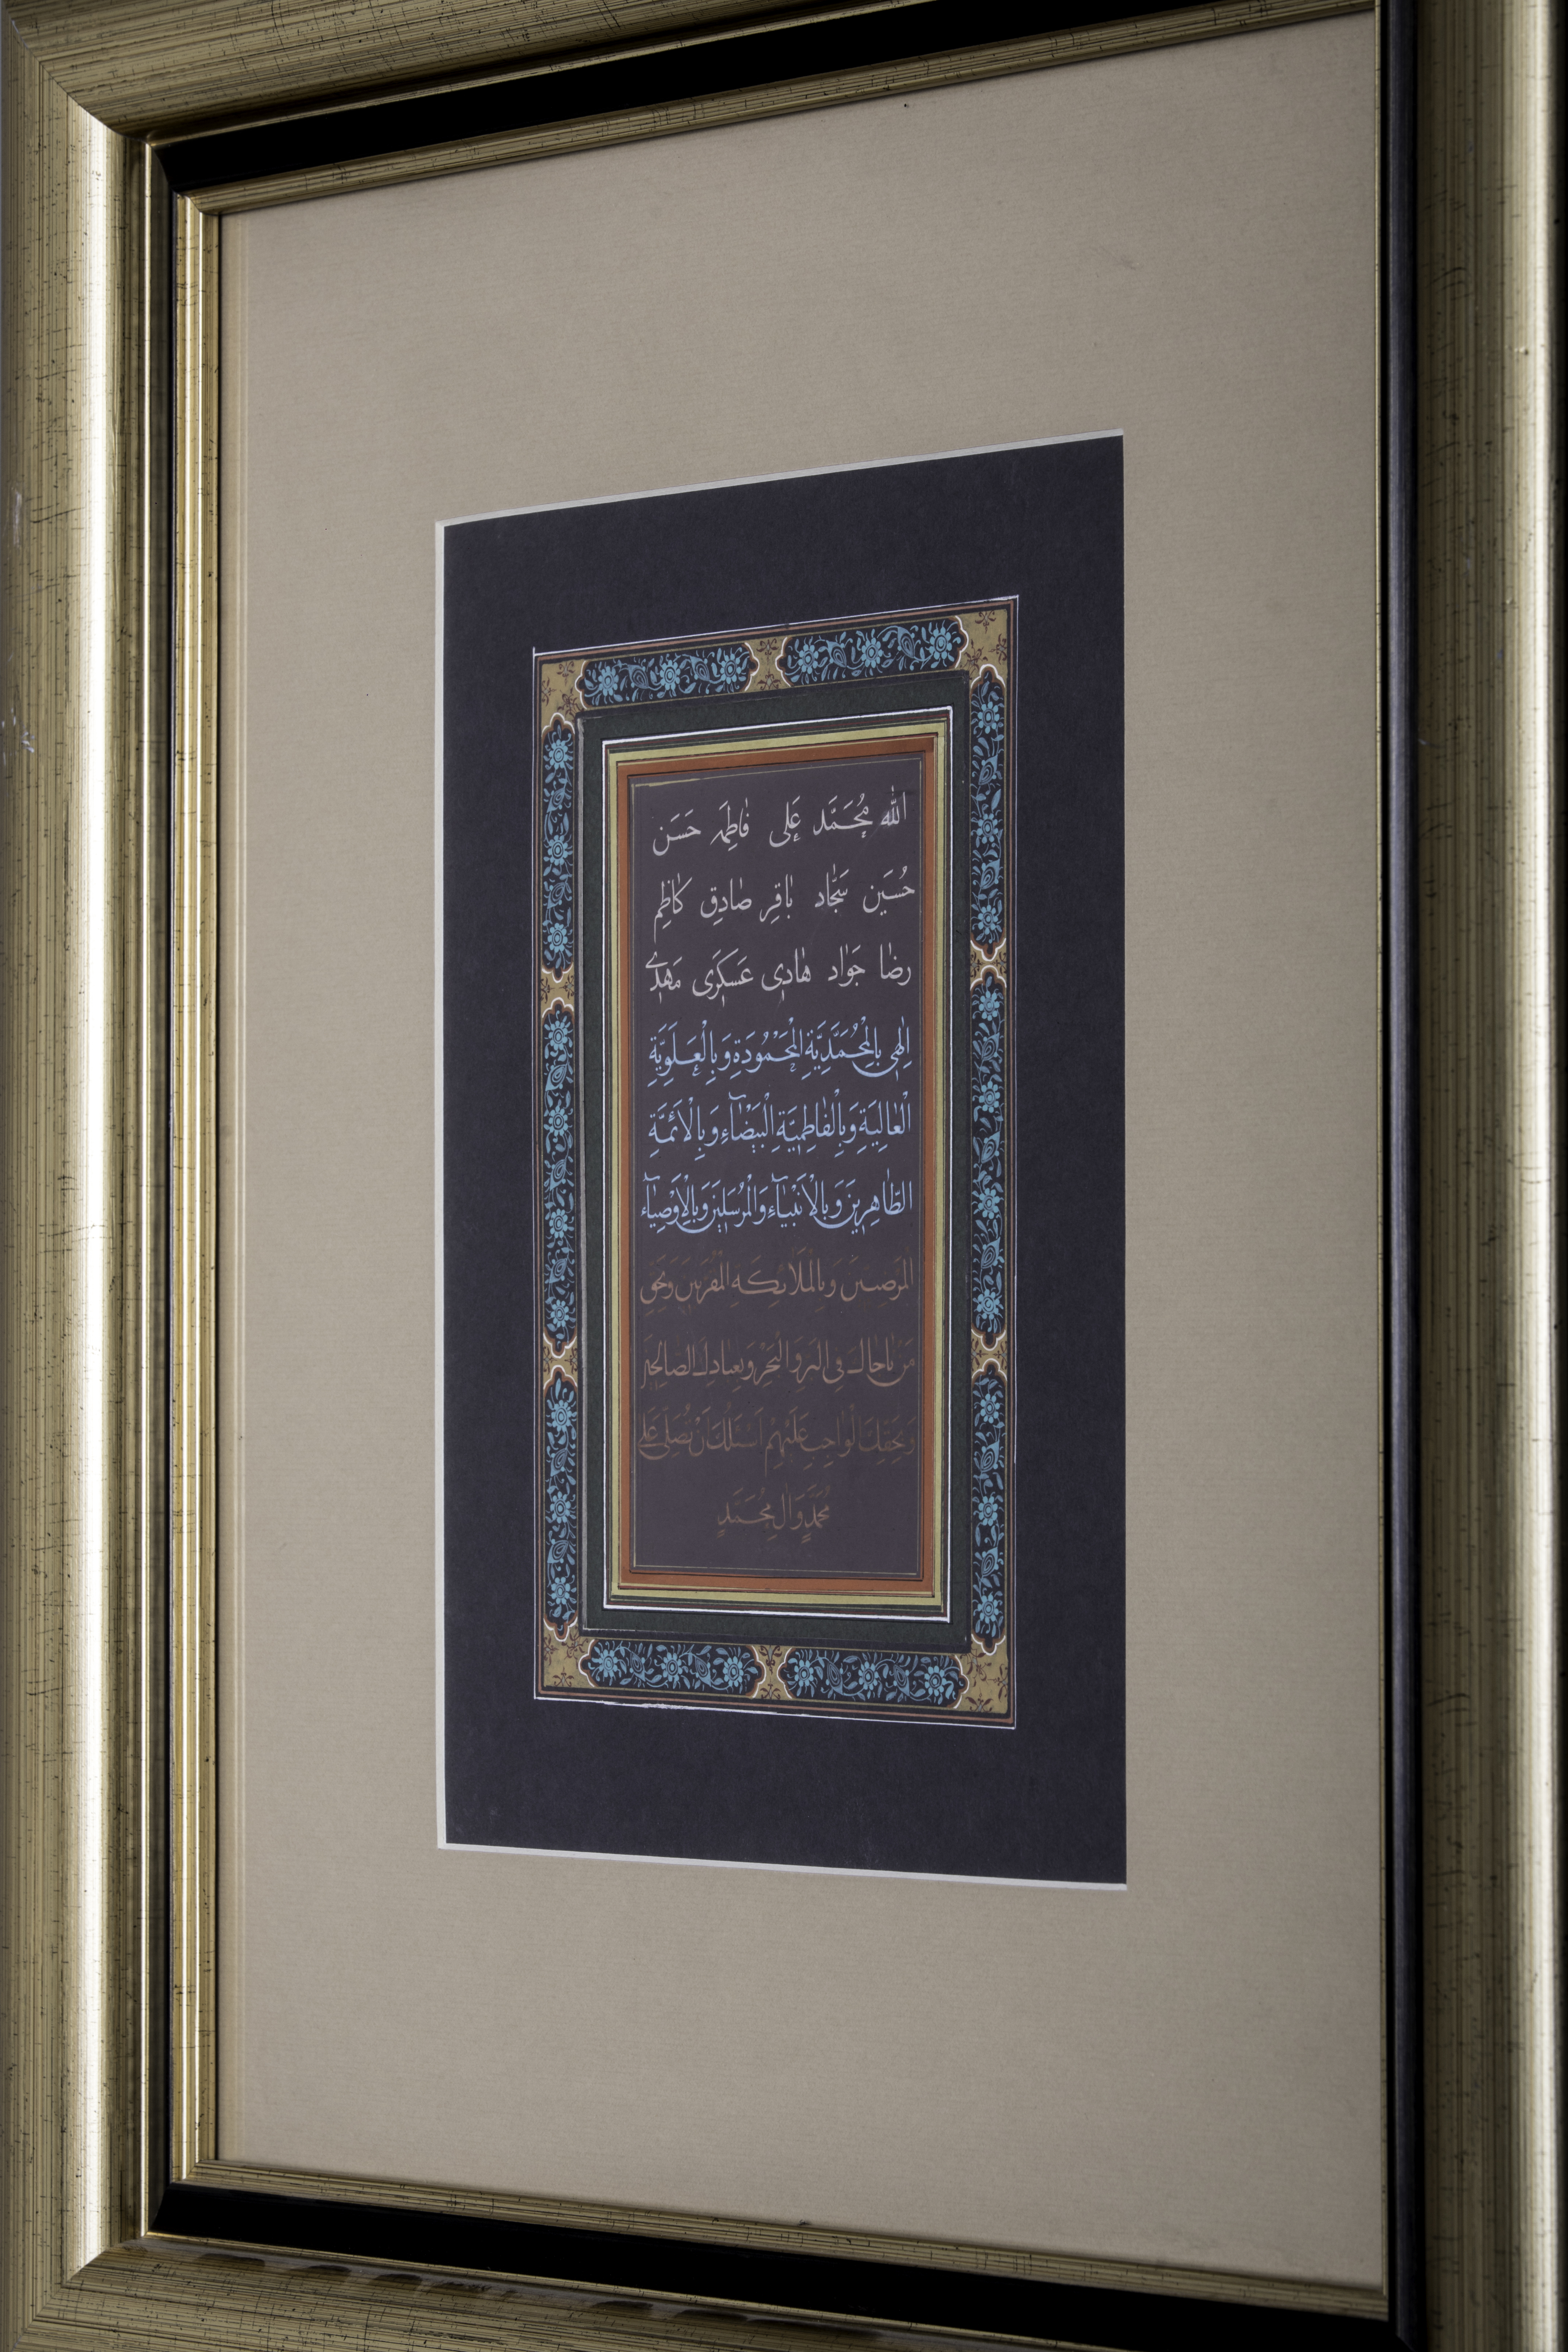 اللّٰه مُحَمَّد عَلی فٰاطِمَه حَسَن
حُسَین سَجّٰاد بٰاقِر صٰادِق کٰاظِم
رِضٰا جَوٰاد هٰادِی عَسکَرِی مَهدِی
اِلٰهِی بِالْمُحَمَّدِيَّةِ الْمَحْمُودَةِ وَ بِالْعَلَوِيَّةِ
الْعٰالِيَةِ وَ بِالْفٰاطِمِيَّةِ الْبَيْضٰآءِ وَ بِالْاَئِمَّةِ
الطّٰاهِرِينَ وَ بِالْاَنْبِيٰآءِ وَالْمُرْسَلِينَ وَ بِالْاَوْصِيٰآءِ
المَرضیین وَ بِالْمَلَائِکَةِ الْمُقَرَّبین وَ بِحَقِّ
مَنْ نٰاجٰاكَ فِی الْبَرِّ وَ الْبَحْرِ وَ بِعِبادِكَ الصالِحین
وَ بِحَقِّكَ الْوٰاجِبِ عَلَيْهِمْ اَسْئَلُكَ اَنْ تُصَلِّیَ عَلی
مُحَمَّدٍ وَ اٰلِ مُحَمَّدٍ